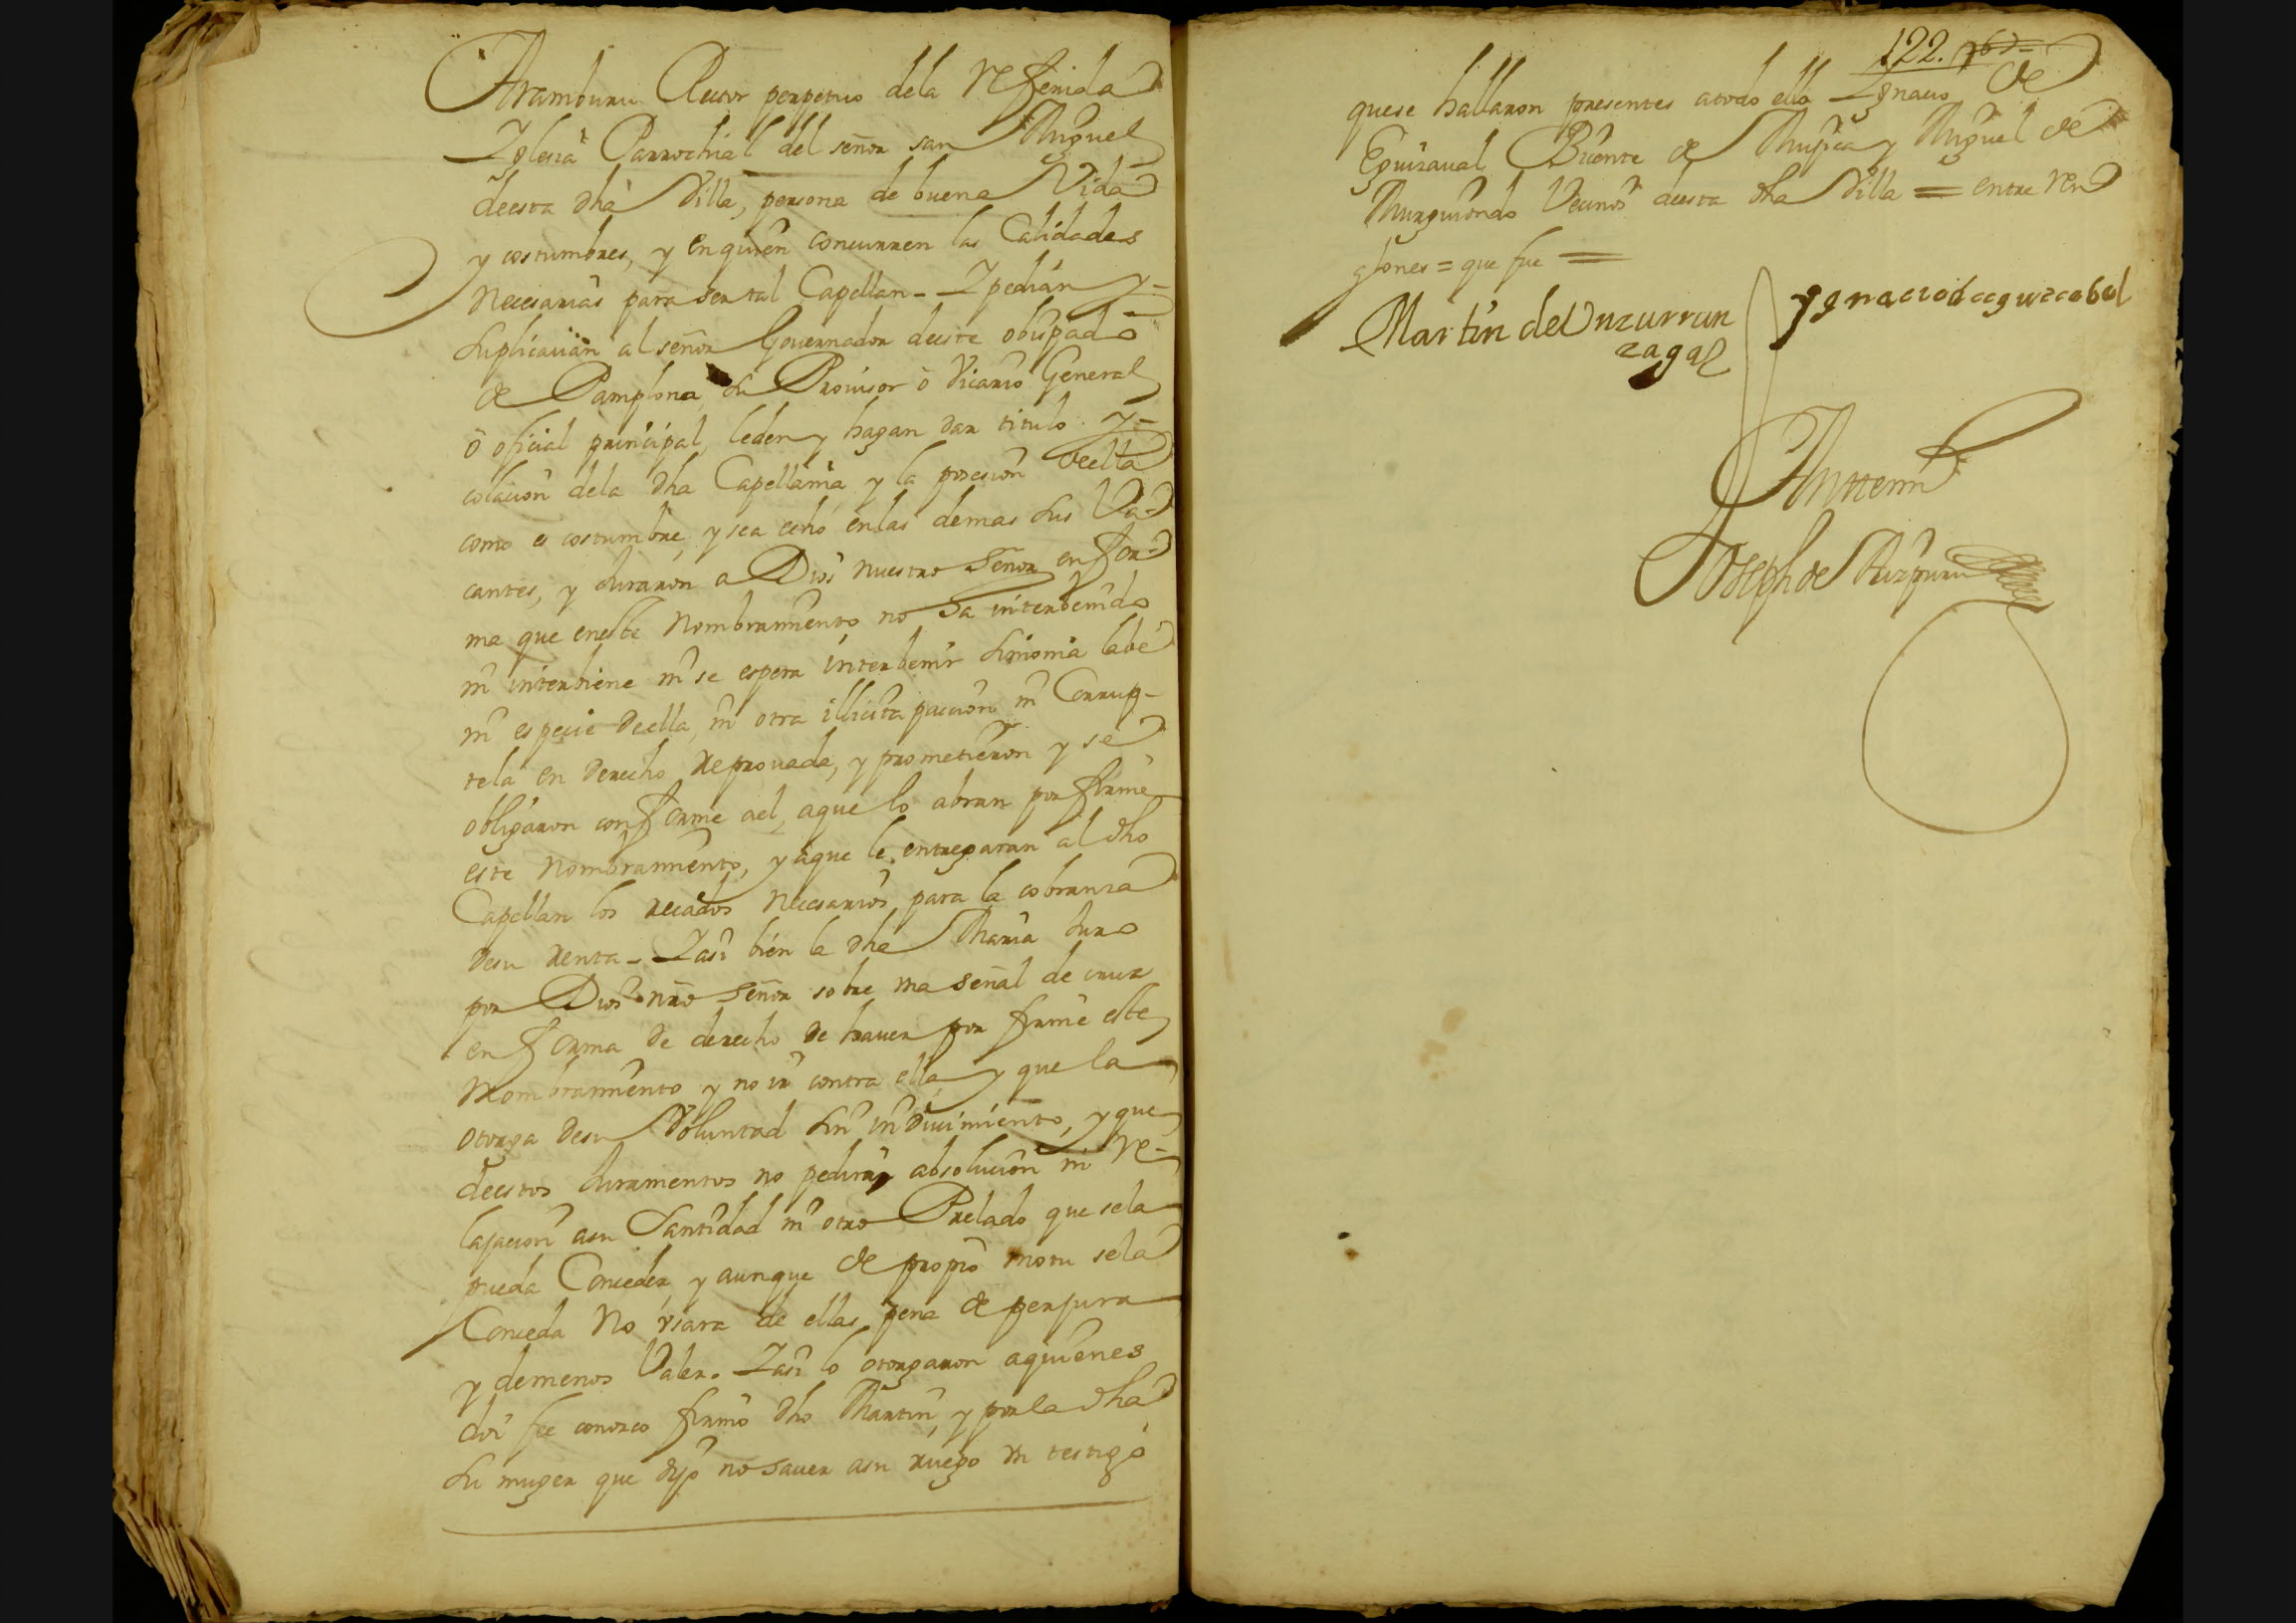 Aramburu Rector perpetuo dela Referida
Iglesia Parrochial del señor san Miguel
deesta dha Villa, persona de buena Vida
y costumbres, y enquien concurren las Calidades
necesarias para ser tal Capellan - I pedian y -
suplicavan al señor Governador deeste obispado
de Pamplona su Provisor ò Vicario General
ò oficial principal, leden y hagan dar titulo y -
colacion dela dha Capellania y la posesion deella
como es costumbre, y sea echo enlas demas sus Va-
cantes, y Juraron a Dios nuestro Señor en for-
ma que eneste Nombramiento no Ha interbenido
ni interbiene ni se espera interbenir simonia labe
ni especie deella, ni otra illicita paccion ni Corrup-
tela en derecho Reprovada, y prometieron y se
obligaron conforme ael, aque lo abran por firme
este Nombramiento, y àque le entregaran al dho
Capellan los recados necesarios para la cobranza
desu renta - I asi bien la dha Maria Juro
por Dios nro Señor sobre una señal de cruz
en forma de derecho de haver por firme este
Nombramiento y no ir contra ella y que la
otorga desu Voluntad sin induzimiento, y que
deestos Juramentos no pedira absolucion ni Re-
lajacion asu Santidad ni otro Prelado que sela
pueda Conceder, y aunque de propio motu sela
Conceda No vsara de ellas pena de perjura
y demenos Valer. I asi lo otorgaron aquienes
doi fee conozco firmo dho Martin, y por la dha
su muger que dijo no saver asu ruego un testigo
122.
quese hallaron presentes atodo ello Ignacio de
Eguizaval Bicente de Mugica y Miguel de
Murguiondo Vecinos deesta dha Villa = entre Ren
glones = que fue =
Martin de Unzurrun
zaga
Ygnacio de eguizabal
Antemi
Joseph de Aizpuru